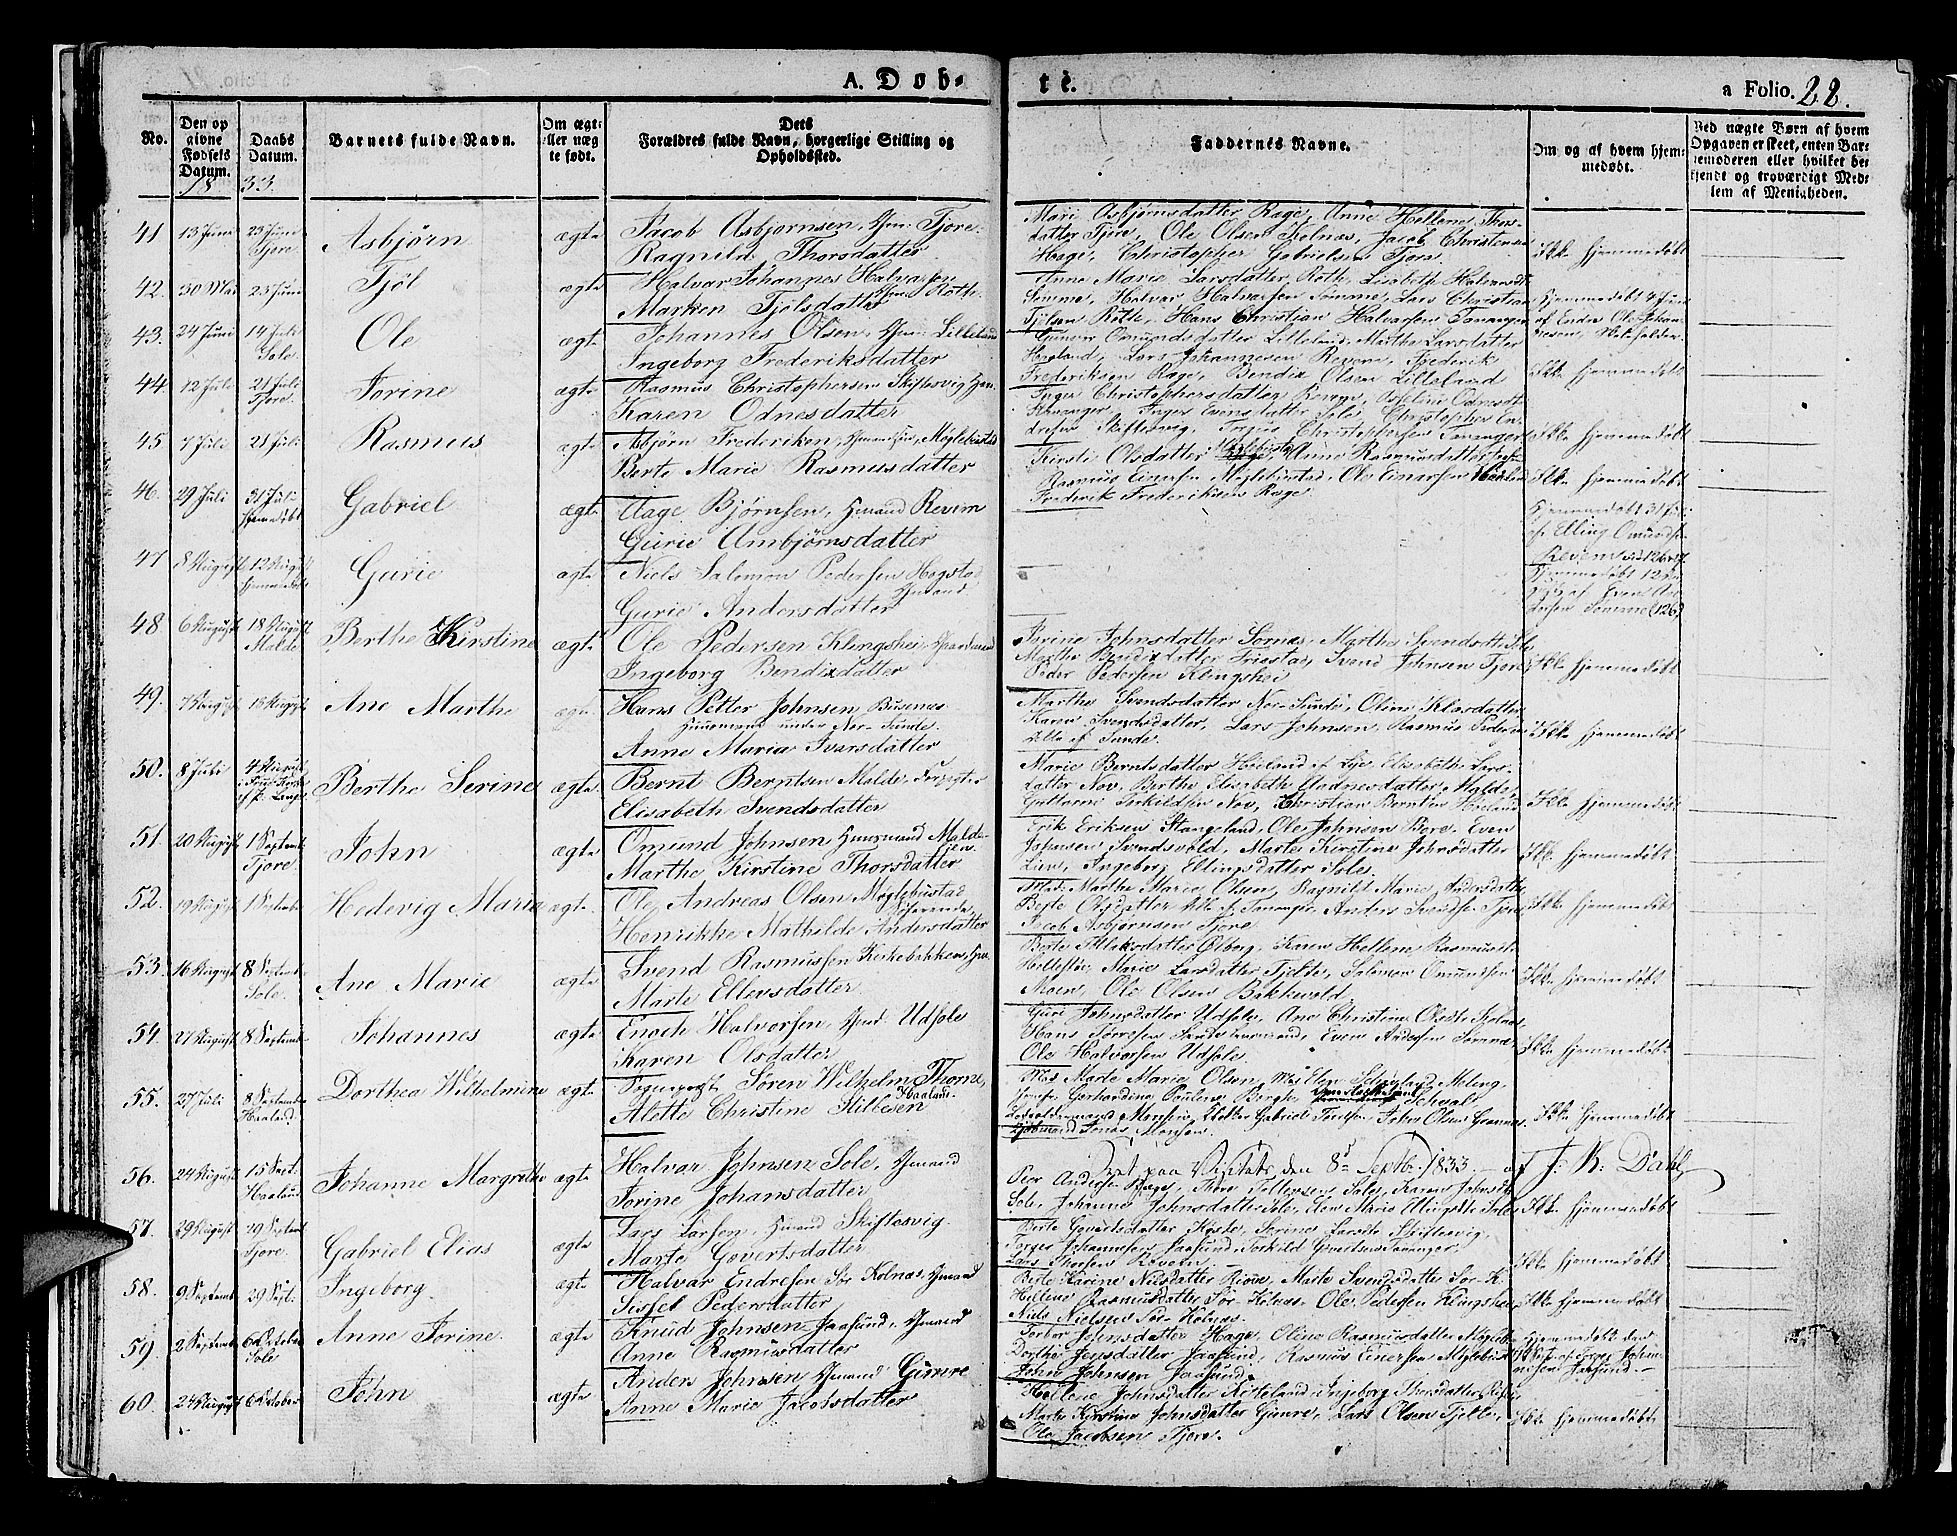 A. Døb-
te.
a Folio. 22.
No.
Den op
givne
Fødsels
Datum.
18
Daabs
Datum.
33.
Barnets fulde Navn.
Om ægte
eller næg
te født.
Dets
Forældres fulde Navn, borgerlige Stilling og
Opholdssted.
Faddernes Navne.
Om og af hvem hjem-
medøbt.
Ved nægte Børn af hvem
Opgaven er skeet, enten Bar-
nemoderen eller hvilket be-
kjendt og troværdigt Med-
lem af Menigheden.
41 13 Juni 23 Juni
Tjore
Asbjørn ægte Jacob Asbjørnsen, Hmd Tjore.
Ragnild Thorsdatter
Mari Asbjørnsdatter Rage, Anne Hellene Thors-
datter Tjore, Ole Olsen Kolnæs, Jacob Christensen
Hage, Christopher Gabrielsen Tjore
Ikke hjemmedøbt
42. 30 Mai 23 Juni Tjøl ægte Halvar Johannes Halvarsen
Hmd Roth.
Marken Tjølsdatter
Anne Marie Larsdatter Roth, Lisabeth Halvarsdt
Sømme, Halvar Halvarsen Sømme, Lars Christian
Tjølsen Roth, Hans Christian Halvarsen Tananger
Hjemmedøbt 4 Juni
af Endre Ole Johan-
nesen,
43. 24 Juni 14 Juli
Sole
Ole ægte Johannes Olsen, Hmd Lilleland
Ingeborg Frederiksdatter
Gunvor Omundsdatter Lilleland, Marthe Larsdatter
Hogland, Lars Johannesen Revem, Frederik
Frederiksen Rage, Bendix Olsen Lilleland
Ikke hjemmedøbt
44 12 Juli 21 Juli
Tjore.
Jorine ægte Rasmus Christophersen Skiftesvig Hm.
Karen Odnesdatter
Inger Christophersdatter Renge, Aseline Odnesdt
Tananger, Inger Evensdatter Sole, Christopher En-
dresen Skiftesvig, Torjus Christophersen Tananger
Ikke hjemmedøbt
45 7 Juli 21 Juli Rasmus ægte Asbjørn Frederiksen, Huusmd, Meglebustad
Berte Marie Rasmusdatter
Kirsti Olsdatter Meglebustad, Anne Rasmusdatter
Rasmus Einarsen Meglebustad, Ole Einarsen
Frederik Frederiksen Rage
Ikke hjemmedøbt
46. 29 Juli 31 Juli
hjemedøbt
Gabriel ægte Aage Bjørnsen, Hmand Revem
Gurie Ambjørnsdatter
Hjemmedøbt 31 Juli
af Elling Omundsen
Revem
47 8 August 12 August
hjemmedøbt
Gurie ægte Niels Salomon Pedersen Hogstad
Hmand
Gurie Andersdatter
Hjemmedøbt 12
af Even An-
dersen Sømme (126)
48 6 August 18 August
Malde
Berthe Kirstine ægte Ole Pedersen Klingshei, Gaardmand
Ingeborg Bendixdatter
Jorine Johnsdatter Sørnæs, Marthe Svendsdtt Sole
Marthe Bendixdatter Friestad, Svend Johnsen Tjore
Peder Pedersen Klingshei
Ikke hjemmedøbt
49. 7 August 18 August Ane Marthe ægte Hans Petter Johnsen, Busenes
Huusmand under Nor-Sunde.
Anne Maria Ivarsdatter
Marthe Svendsdatter Nor-Sunde, Oline Klasdatter
Karen Svendsdatter, Lars Johnsen, Rasmus Pedersen
alle af Sunde.
Ikke hjemmedøbt
50. 8 Juli 4 August
Berthe Serine ægte. Bernt Berntsen Malde, Forpagter
Elisabeth Svendsdatter
Marie Berntsdatter Høieland af Lye, Elisabeth Lars-
datter Nov, Berthe Elisabeth Aadnesdatter Malde,
Guttorm Terkildsen Nov, Christian Berntsen Høieland
Ikke hjemmedøbt
51. 20 August 1 Septemb
Tjore.
John ægte Omund Johnsen Huusmand Malde-
Marthe Kirstine Thorsdatter
Erik Eriksen Stangeland, Ole Johnsen Bore, Even
Johansen Svendsvold, Marte Kirstine Johnsdatter
Lien, Ingeborg Ellingsdatter Sole.
Ikke hjemmedøbt
52. 19 August 1 September Hedevig Marie ægte. Ole Andreas Olsen Meglebustad
Henrikke Mathilde Andersdatter
Mad: Marthe Marie Olsen, Ragnild Marie Andersdatter
Berte Olsdatter Alle af Tananger, Anders Svendsen Tjore,
Jacob Asbjørnsen Tjore
Ikke hjemmedøbt
53. 16 August 8 Septemb
Sole.
Ane Marie ægte Svend Rasmussen Kirkebakken, Hm.
Marte Ellevsdatter
Berte Aslaksdatter Øiberg, Karen Hellem Rasmusdtr
Hellestøe, Marie Larsdatter Tjelte, Solomon Omundsen
Moen, Ole Olsen Bakkevold
Ikke hjemmedøbt
54. 21 August 8 Septemb Johannes ægte Enoch Halvorsen, Hmd. Udsole
Karen Olsdatter
Guri Johnsdatter Udsole, Ane Christine Olsdtr
Hans Sjøresen, Even Andersen Sømme,
Ole Halvorsen Udsole.
Ikke hjemmedøbt
55. 27 Juli 8 September
Haaland.
Dorthea Wilhelmine ægte Sogneprest Søren Wilhelm Thorne,
Haaland.
Alette Christine Stibesen
Mad Marte Marie Olsen, Meling,
Jomfru Gerhardine Pouline Bergh, Schwal
Gabriel, John Olsen Grannes
Jonas Monsen.
Ikke hjemmedøbt
Seet paa Visitats, den 8de Septbr: 1833. af J. K: Dahl
56. 24 August 15 Sept:
Haaland
Johanne Margrethe ægte Halvar Johnsen Sole, Hmand
Jorine Johansdatter
Peer Andersen Hage, Thore Tollevsen Sole, Karen Johnsdt
Sole, Johanne Johnsdatter Sole, Elen Marie Elingsdtr Sole
Ikke hjemmedøbt
57. 29 August 29 Septemb
Tjore.
Gabriel Elias ægte Lars Larsen, Hmand Skiftesvig.
Marte Govertsdatter
Berte Govertsdatter Risnæs, Serine Larsdtr Skiftesvig,
Torger Johannesen Jaasund, Toskild Govertsen Tananger,
Lars Thorsen Revem
Ikke hjemmedøbt
58. 9 Septemb 29 Sept. Ingeborg. ægte Halvar Endresen Sør Kolnæs, Hmand
Sissel Pedersdatter
Berte Karine Nilsdatter Risnæ, Marte Svendsdatter Sør-K.
Hellene Rasmusdatter Sør-Kolnæs, Ole Pedersen Klingshei
Niels Nielsen Sør-Kolnæs.
Ikke hjemmedøbt
59. 2 Septemb 6 October
Sole
Anne Jorine. ægte Knud Johnsen Jaasund, Hmand
Anne Rasmusdatter
Torbor Jensdatter Hage, Oline Rasmusdatter Megleb
Dorthe Jensdatter Jaasund, Rasmus Einersen Meglebust
John Johnsen Jaasund.
Hjemmedøbt den
Jaasund.
60. 24 August 6 October John ægte Anders Johnsen Hmand Gimre
Anne Marie Jacobsdatter
Hellene Johnsdatter Kitteland, Ingeborg Thorsdatter
Marte Kirstine Johnsdatter Gimre, Lars Olsen Tjelte,
Ole Jacobsen Tjore.
Ikke hjemmedøbt